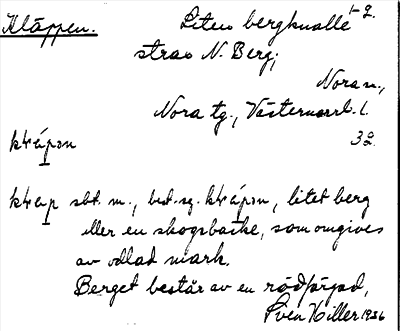 Kläppen. Liten bergknalle 1-2.
strax N. Berg;
Nora sn.,
Nora tg., Västernorrl. l.
32
klápən
sbt. m., best. sg. klápən, litet berg
eller en skogsbacke, som omgives
av odlad mark.
Berget består av en rödfärgad,
Sven Hiller 1936